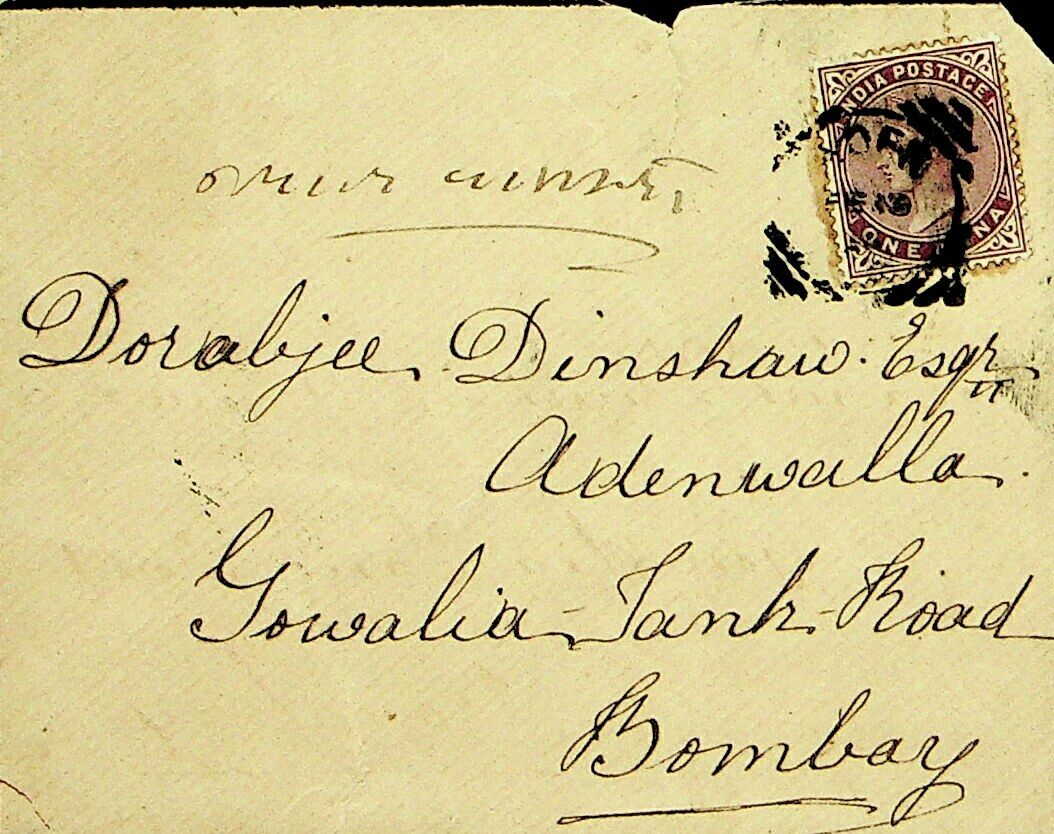 INDIA POSTAGE
ONE ANNA
Dorabjee Dinshaw. Esqr
Adenwalla.
Gowalia-Tank-Road
Bombay